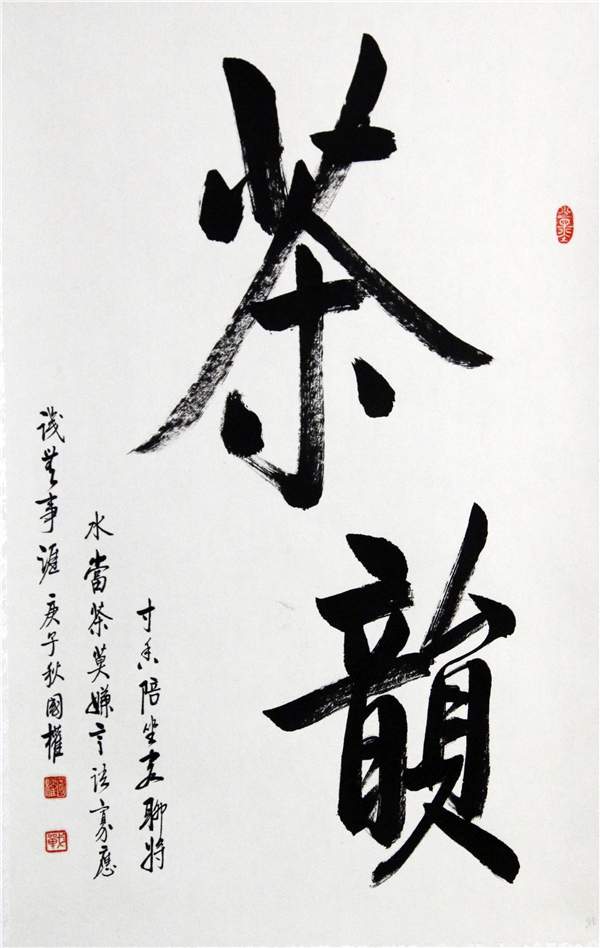 茶韻
寸香陪坐客聊將
水當茶莫嫌言語寡應
識無事涯 庚子秋國權